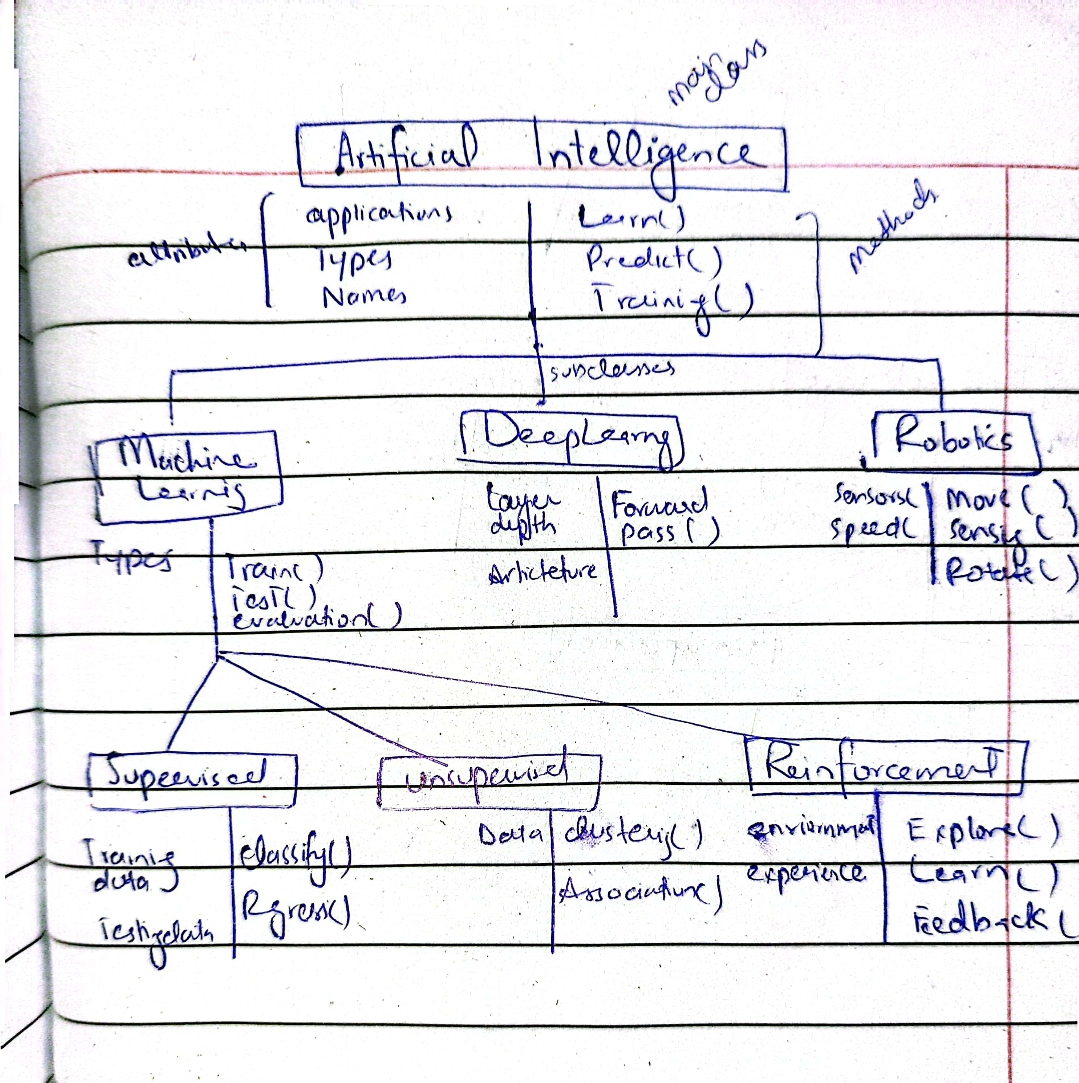 major class
Artificial Intelligence
attributes
applications
Types
Names
Learn()
Predict()
Trainig()
methods
subclasses
Machine
Learnig
Types
Train()
Test()
evaluation()
DeepLearng
Layer
depth
Articteture
Forward
pass()
Robotics
Sensors(
speed(
Move()
Sensig()
Rotate()
Supervised
Trainig
data
Testigdata
classify()
Rgress()
unsupervised
Data
clusterig()
Association()
Reinforcement
enviornmat
experience
Explore()
Learn()
Feedback(